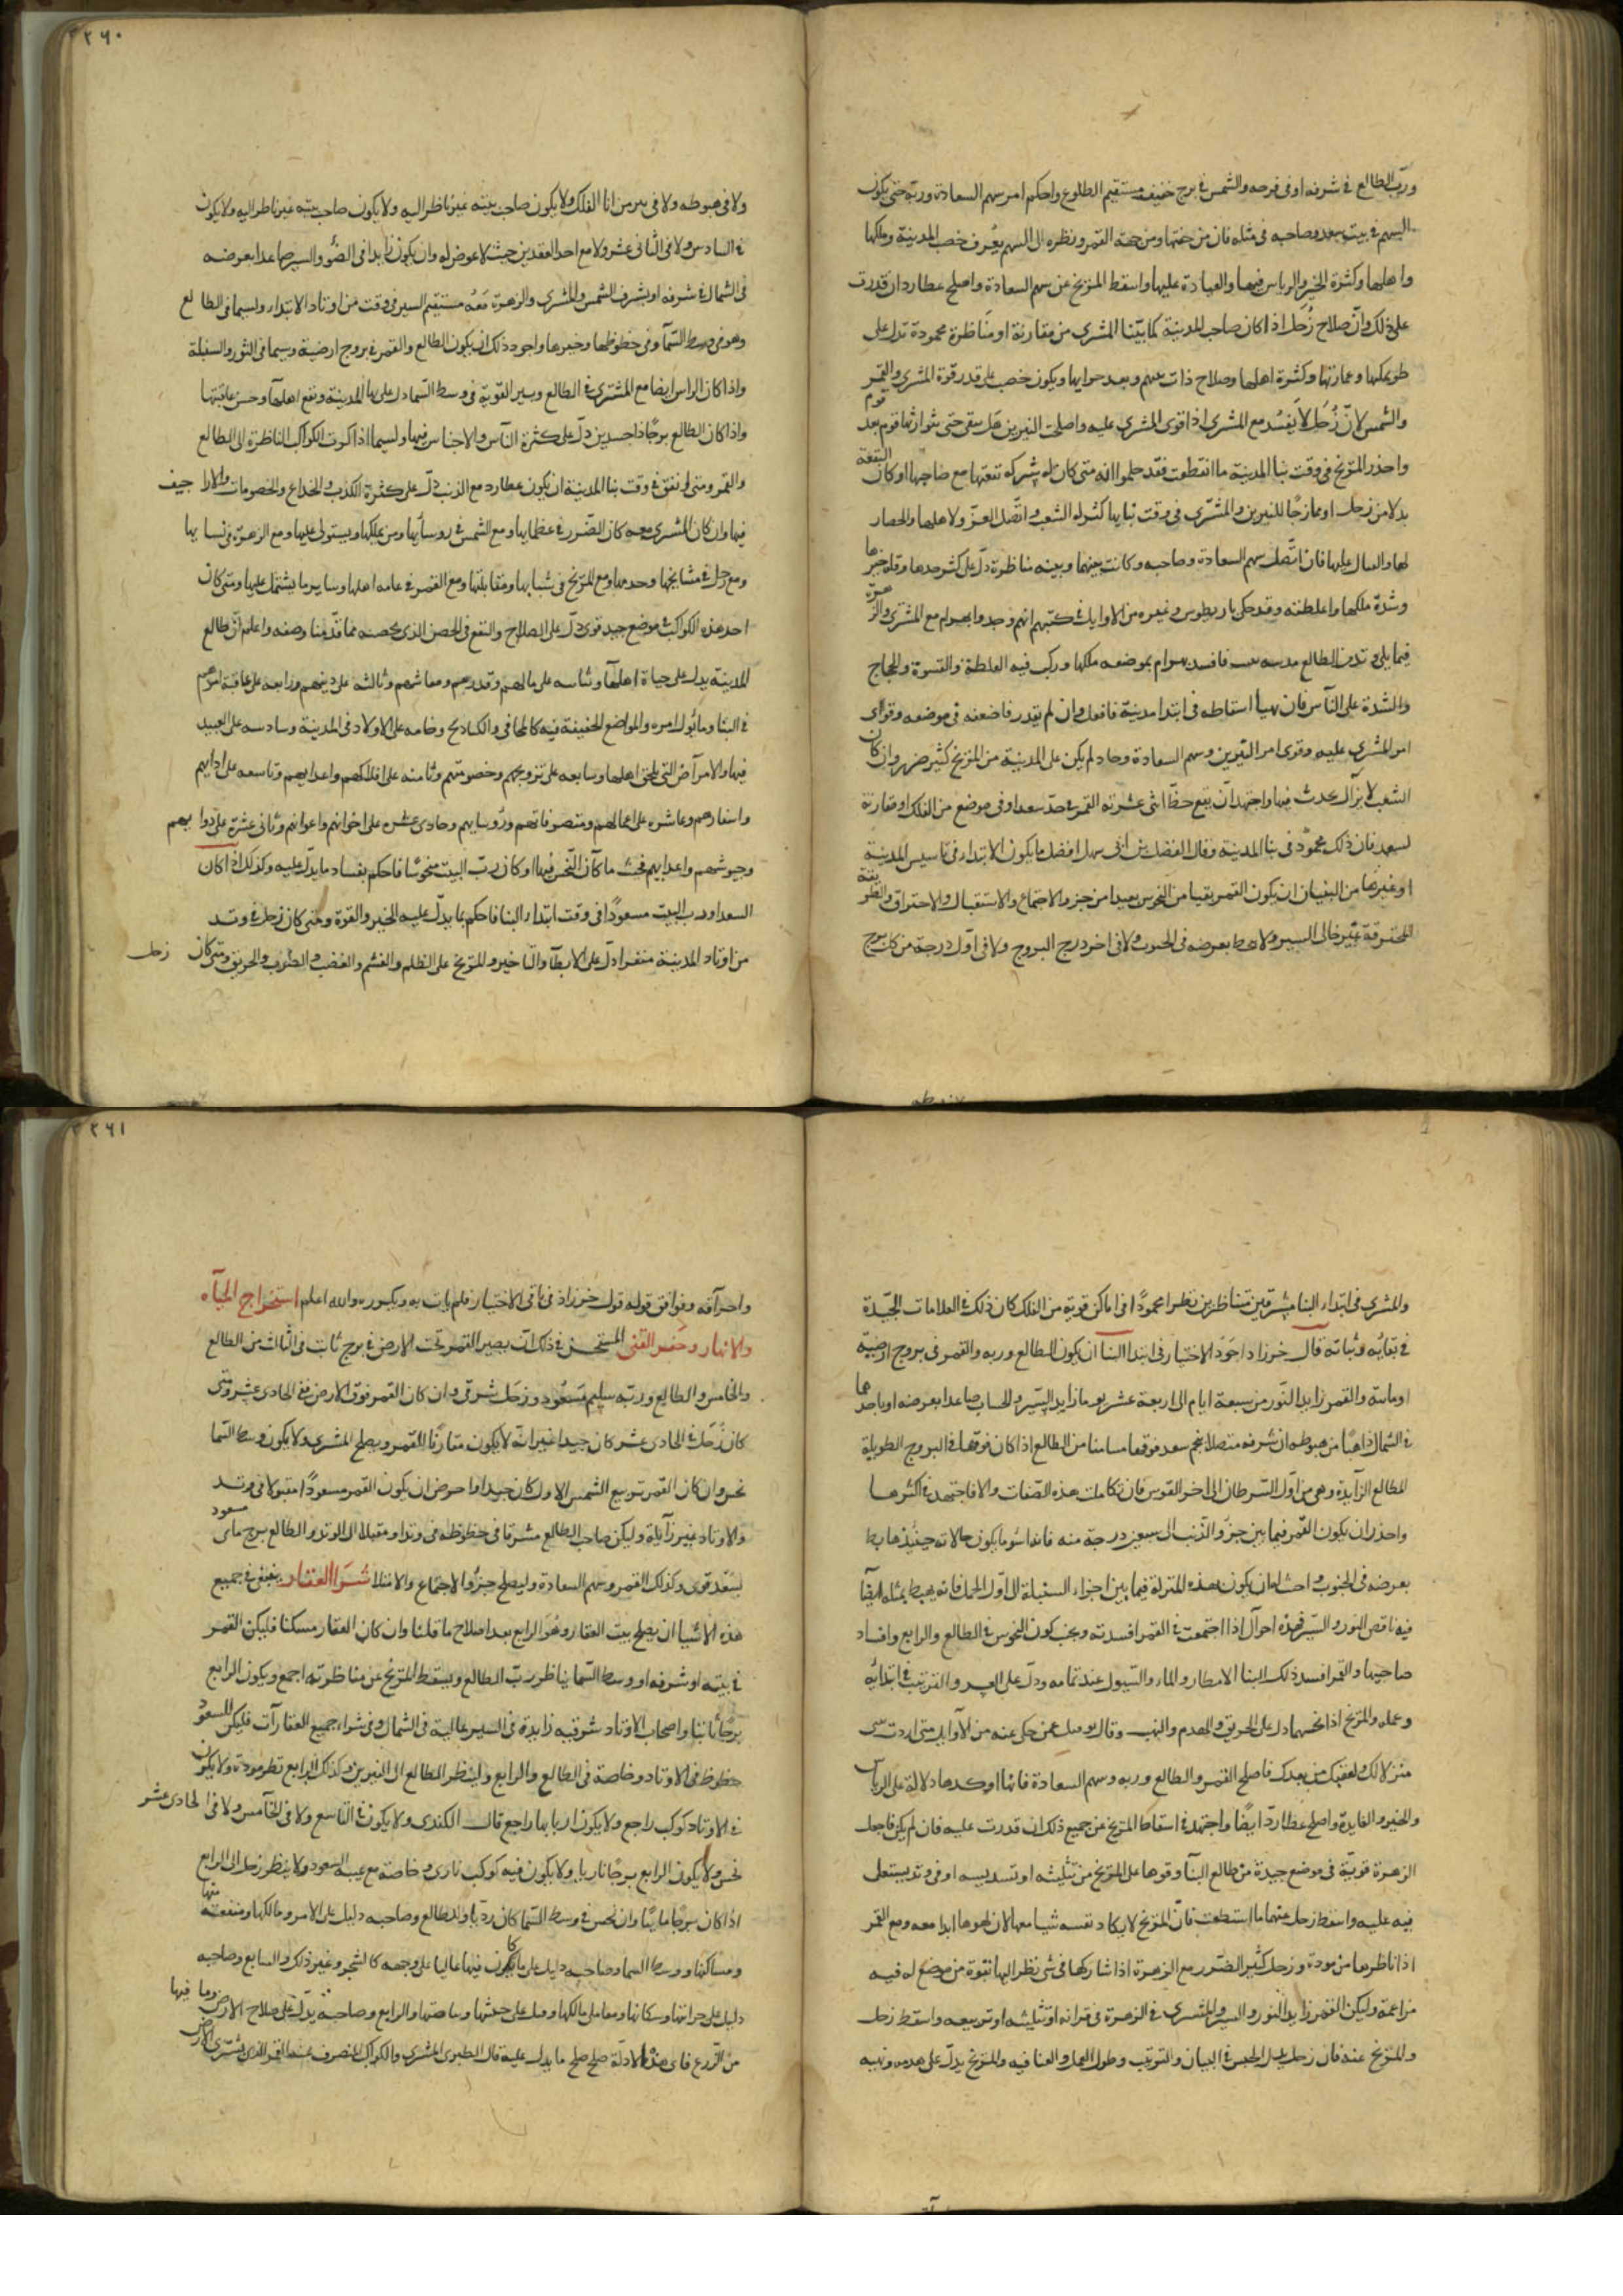 ورب الطالع في شرفه او في فرحه والشمس في برج خفيف مستقيم الطلوع واحكم امر سهم السعادة وربه حتى يكون
السهم في بيت سعد وصاحبه في مثله فان من جهتها ومن جهة القمر ونظره الى السهم يعرف خصب المدينة وملكها
واهلها وكثرة الخير والرياس فيها والعبادة عليها واسقط المريخ عن سهم السعادة واصلح عطارد ان قدرت
على ذلك وان صلاح زحل اذا كان صاحب المدينة كما بيّنا المشتري من مقارنة او مناظرة محمودة تدل على
طو ملكها وعمارتها وكثرة اهلها وصلاح ذات بينهم وبعد حرابها ويكون خصب على قدر قوة المشتري والقمر
والشمس لان زحل لا يفسد مع المشتري اذا قوى المشتري عليه واصلحت النيرين حتى يتوارثها قوم بعد قوم
واحذر المريخ في وقت بنا المدينة ما استطعت فقد علموا انه متى كان له شركة مع صاحبها او كان
بدلا من زحل او ممازجا للنيرين والمشتري في وقت بنايها كثر له الشغب واتصل العز ولاهلها والحصار
لها والقتال عليها فان اتصل سهم السعادة وصاحبه وكانت بينهما وبينه مناظرة دل على كثر حدها وقلة خيرها
وشدة ملكها واغلظته وقد حكى وغيره من الاوايل في كتبهم انهم وجدوا بهرام مع المشتري والزهرة
فيما يلي وتد الطالع فافسد بهرام بموضعه ملكها وركب فيه الغلظة والقسوة واللجاج
والشدة على الناس فان تهيأ اسقاطه في ابتدا مدينة فافعل وان لم يقدر فاضعفه في موضعه وقوا
امر المشتري عليه وقوى امر النيرين وسهم السعادة لم يكن على المدينة من المريخ كثير ضرر وان كان
الشغب لا يزال يحدث فيها واجتهد ان يقع حظ اثنى عشرية القمر في حد سعد او في موضع من الفلك او مقارنة
لسعد فان ذلك محمود في بنا المدينة وقال الفضل بن سهل افضل ما يكون الابتداء في تاسيس المدينة
او غيرها من البنيان ان يكون القمر نقيا من النحوس بعيدا من جزو الاجتماع والاستقبال والاحتراق والطريقة
المحترقة غير خالى السير ولا هابط بعرضه في الجنوب ولا في اخر درج البروج ولا في اول درجة من كل برج
٢٢٦٠
ولا في هبوطه ولا في بير من انا الفلك ولا يكون صاحب بيته غير ناظر اليه ولا يكون صاحب بيته غير ناظر اليه ولا يكون
في السادس ولا في الثاني عشر ولا مع احد العقدين حيث لا عوض له وان يكون زايدا في الضوء والسير صاعدا بعرضه
في الشمال في شرفه او بشرف الشمس والمشتري والزهرة معه مستقيم السير في وقت من اوتاد الابتداء ولاسيما في الطالع
وهو في وسط السمآ وفي حظوظها وخيرها واجود ذلك ان يكون الطالع والقمر في بروج ارضية وسيما في الثور والسنبلة
واذا كان الراس ايضا مع المشتري في الطالع وسير القوية في وسط السما دل على بها المدينة ونفع اهلها وحسن عاقبتها
واذا كان الطالع برجا ذا جسدين دل على كثرة الناس والاجناس فيها ولسيما اذا كرت الكواكب الناظرة الى الطالع
والقمر ومتى لم نفق في وقت بنا المدينة ان يكون عطارد مع الذنب دل على كثرة الكذب والخداع والخصومات والاراجيف
فيها وان كان المشتري معه كان الضرر في عظمايها ومع الشمس في روسائها ومن يملكها ويستولى عليها ومع الزهرة في نسايها
ومع زحل في مشايخها وخدمها ومع المريخ في شبابها ومقابلتها ومع القمر في عامه اهلها وساير ما يشتمل عليها ومتى كان
احد هذه الكواكب في موضع جيد قوى دل على الصلاح والنفع في الحصن الذي يخصه مما قدمنا وصفه واعلم ان طالع
المدينة يدل على حياة اهلها وثانيه على مالهم وقدرهم ومعاشهم وثالثه على دينهم ورابعه على عاقبة امرهم
في البنا وما يؤل امره والمواضع الخفيفة فيه وخامسه على الاولاد في المدينة وسادسه على العبيد
فيها والامراض التي تلحق اهلها وسابعه على تزويجهم وخصومتهم وثامنه على واعدايهم وتاسعه على اديانهم
واسفارهم وعاشره على اعمالهم ومتصرفاتهم وروسايهم وحادي عشره على اخوانهم واعوانهم وثاني عشره على دوابهم
وجيوشهم واعدايهم فحيث ما كان النحس فيها او كان رب البيت منحوسا فاحكم بفساد ما يدل عليه وكذلك اذا كان
السعد او رب البيت مسعودا في وقت ابتداء البنا فاحكم بما يدل عليه الخير والقوة ومتى كان زحل في وتد
من اوتاد المدينة منفرد ادل على الابطآ والتاخير والمريخ على الظلم والغشم والغضب والضرب والحريق ومتى كان زحل
والمشري في ابتداء البنا مشرقين متناظرين نظرا محمودا في اماكن قوية من الفلك كان ذلك من العلامات الجيدة
في بقايه وثباته قال خرزاد اجود الاختيار في ابتدا البنا ان يكون الطالع وربه والقمر في بروج ارضيه
او مايية والقمر زايد النور من سبعة ايام الى اربعة عشر يوما زايد السير والحساب صاعدا بعرضه او باحدهما
في الشمال ذاهبا من هبوطه ان شرفه متصلا بنجم سعد فوقها مسامتا من الطالع اذا كان فوقها في البروج الطويلة
المطالع الزايدة وهي من اول السرطان الى اخر القوس فان تكاملت هذه الصفات والا فاجتهد في اكثرها
واحذر ان يكون القمر فيما بين جزؤ الذنب الى سبعين درجة منه فانه اسوا ما يكون حالاته حينئذ هابط
بعرضه في الجنوب واحذر ان يكون بهذه المنزلة فيما بين اجزاء السنبلة الى اول الحمل فانه يهبط بمثله ايضا
فيه ناقص النور والسير فهذه احوال اذا اجتمعت في القمر افسدته وتجنب كون النحوس في الطالع والرابع وافساد
صاحبها والقمر افسد ذلك البنا الامطار والماء والسيول عند تمامه ودل على العسر والترتيب في ابتدائه
وعمله والمريخ اذا نحسهما دل على الحريق والهدم والنهب وقال عمن حكى عنه من الاوايل متى اردت
منزلا لك ولعقبك من بعدك فاصلح القمر والطالع وربه وسهم السعادة فانها اوكدها دلالة على الرياس
والخير والفايدة واصلح عطارد ايضا واجتهد في اسقاط المريخ عن جميع ذلك ان قدرت عليه فان لم يكن فاجعل
الزهرة قوية في موضع جيدة من طالع البنا وقوها على المريخ من تثليثه او تسديسه او في وتد يستعلى
فيه عليه واسقط زحل عنهما ما استطعت فان المريخ لا يكاد نفسه شيا معها لانه ابدا معه ومع القمر
اذا ناظرها من مودة وزحل كثير الضرر مع الزهرة اذا شاركها في شى نظر اليها بقوة من موضع له فيه
مزاعمة وليكن القمر زايد النور والسير والمشتري في الزهرة في قرانه او تثليثه او تربيعه واسقط زحل
والمريخ عنه فان زحل يدل الحبس في البيان والترتيب وطول العمل والعنا فيه والمريخ يدل على هدمه ونهبه
٢٢٦١
واحراقه ووافق قوله قول خرزاد في باقى الاختيار فلم يات به وتكريره والله اعلم استخراج المياه
والانهار وحفر القنى المستحسن في ذلك ان يصير القمر تحت الارض في برج ثابت في الثالث من الطالع
والخامس والطالع وربه سليم مسعود وزحل شرقى وان كان القمر فوق الارض ففي الحادي عشر ومتى
كان زحل في الحادي عشر كان جيدا غير انه لا يكون مقارنا للقمر ويصلح المشتري ولا يكون وسط السما
نحس وان كان القمر تربيع الشمس الاول كان جيدا واحرص ان يكون القمر مسعودا مقبولا في وتد
والاوتاد غير زايلة وليكن صاحب الطالع مشرقا في حظوظه في وتد او مقبلا الى الوتد والطالع برج مائى مسعود
بسعد قوى وكذلك القمر وسهم السعادة وليصلح جزؤ الاجتماع والامتلا شرا العقار ينبغي في جميع
هذه الاشيا ان يصلح بيت العقار وهو الرابع بعد اصلاح ما قلنا وان كان العقار مسكنا فليكن القمر
في بيته او شرفه او وسط السما يناظر رب الطالع ويسقط المريخ عن مناظرته اجمع ويكون الرابع
برجا ثابتا واصحاب الاوتاد شرقيه زايدة في السير عالية في الشمال وفي شراء جميع العقارات فليكن للسعود
حظوظ في الاوتاد وخاصة في الطالع والرابع ولينظر الطالع الى النيرين وكذلك الرابع نظر مودة ولا يكون
في الاوتاد كوكب راجع ولا يكون اربابها راجع قال الكندي ولا يكون في التاسع ولا في الخامس ولا في الحادي عشر
نحس ولا يكون الرابع برجا ناريا ولا يكون فيه كوكب نارى وخاصة مع غيبة السعود ولا ينظر زحل الى الرابع
اذا كان برجا مايا وان نحس في وسط السما كان رديا والطالع وصاحبه دليل على الامر ومالكها ومنفعته منها
ومساكنها ووسط السما وصاحبه دليل على ما يكون فيها عاليا على وجهه كالشجر وغير ذلك والسابع وصاحبه
دليل على حراثها وسكانها ومعامل مالكها والرابع وصاحبه يدل على صلاح الارض وما فيها
من الزرع فاى هذه الادلة صلح صلح ما يدل عليه قال الطبرى المشترى والكواكب المنصرف عنه القمر الذي يشترى الارض